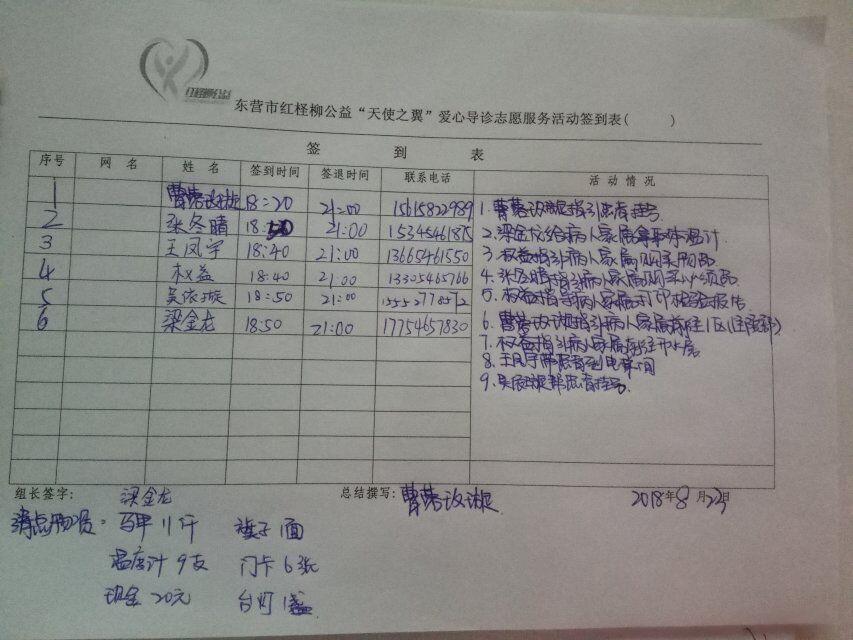 红柽柳公益
东营市红柽柳公益“天使之翼”爱心导诊志愿服务活动签到表( )
签 到 表
序号 网 名 姓 名 签到时间 签退时间 联系电话 活 动 情 况
1 曹蓓 18:20 21:00 15615822989
2 张冬晴 18:30 21:00 15345461875
3 王凤宇 18:40 21:00 13665461550
4 权益 18:40 21:00 13305465766
5 吴依璇 18:50 21:00
6 梁金龙 18:50 21:00 17754657830
1. 指引患者挂号
2. 梁金龙给病人家属拿取体温计
3. 权益指引病人家属购买用品
4. 张冬晴指引病人家属购买必须品
5. 权益指导病人家属打印检验报告
6. 指引病人家属前往1区(住院部)
7. 权益指引病人家属前往开水房
8. 王凤宇带患者到电梯间
9. 帮患者挂号
组长签字: 梁金龙 总结撰写: 2018年8月22号
清点物资: 马甲11件 旗子1面
温度计9支 门卡6张
现金20元 台灯1盏